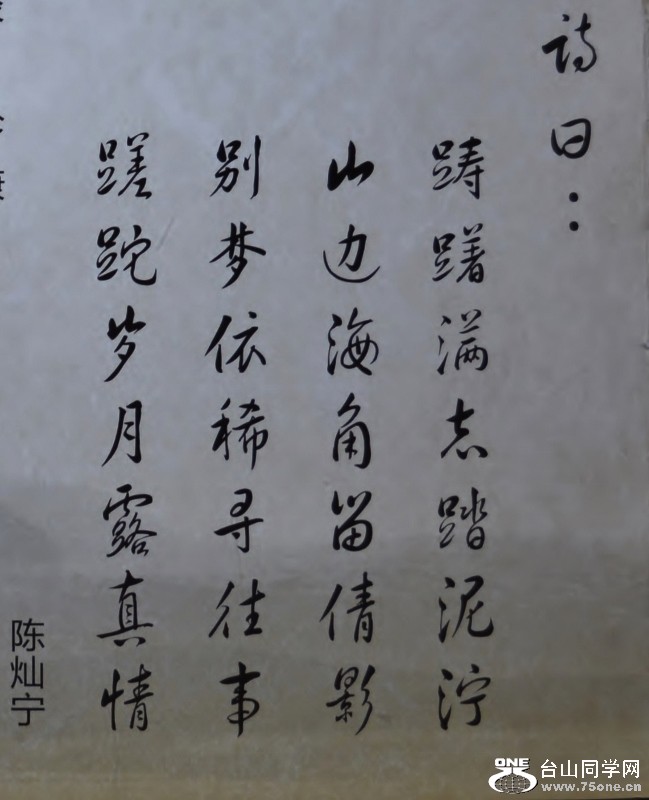 诗曰：
踌躇满志踏泥泞
山边海角留倩影
别梦依稀寻往事
蹉跎岁月露真情
陈灿宁
ONE 台山同学网
www.75one.cn